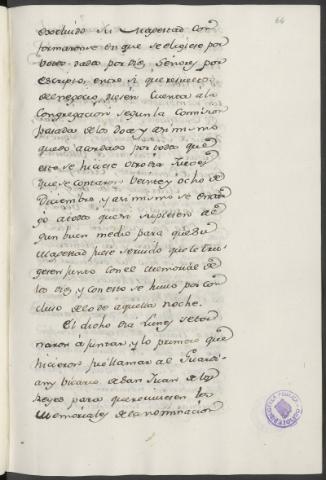 64
excluido su Magestad con
formaronse en que se eligiese por
votos dada por diez Señores por
escripto, entre si que
del negocio, diesen cuenta a la
Congregacion segun la Comision
pasada de los doze y asi mismo
quedo acordado por todos que
esto se hiciese otro dia Jueves
que se contaron Veinte y ocho de
Diciembre, y asi mismo se encar
go a todos que si supiesen al
gun buen medio para que Su
Magestad fuese servido que le tru
gesen junto con el memorial de
los diez y con esto se hubo por con
cluso de lo de aquella noche.
El dicho dia Lunes se tor
naron a juntar, y lo primero que
hicieron fue llamar al Guardi
an y Vicario de San Juan de los
Reyes para que reciviesen los
Memoriales de la nominacion